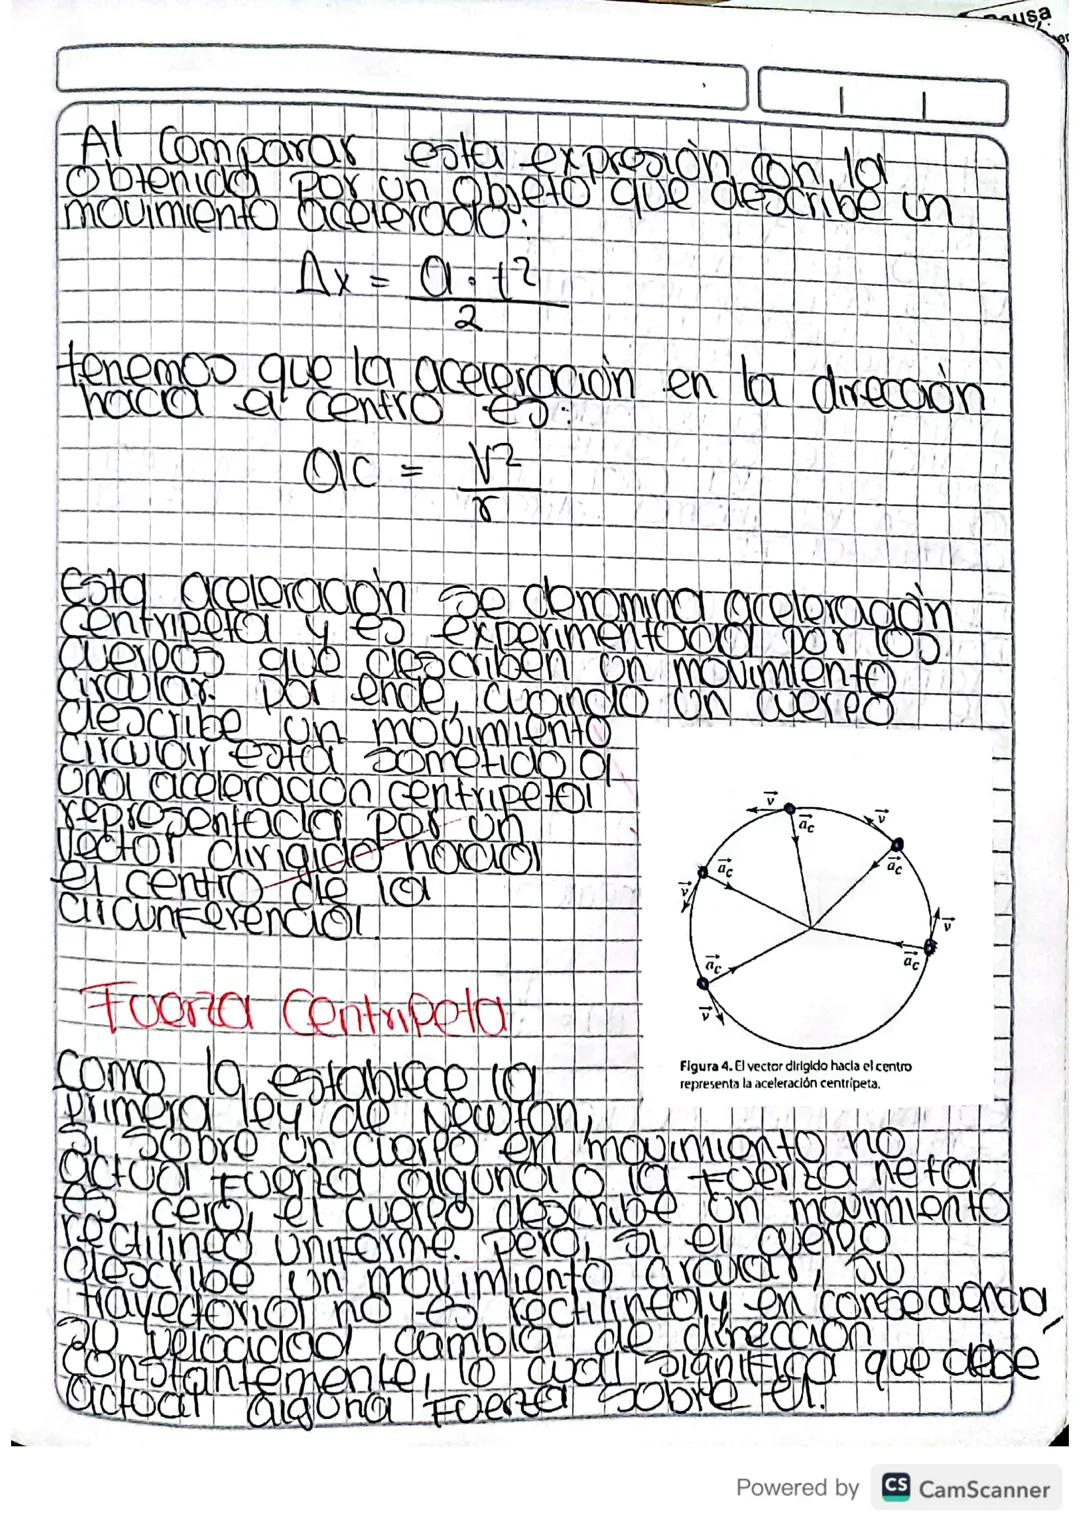 ausa
Al comparar esta expresión con la
obtenida por un objeto que describe un
movimiento acelerado:
Δx = a · t²
2
tenemos que la aceleración en la dirección
hacia el centro es:
ac = v²
r
Esta aceleración se denomina aceleración
centripeta y es experimentada por los
cuerpos que describen un movimiento
circular. por ende, cuando un cuerpo
describe un movimiento
circular esta sometido a
una aceleración centripeta
representada por un
vector dirigido hacia
el centro de la
circunferencia.
Fuerza Centripeta
Como lo establece la
primera ley de Newton,
si sobre un cuerpo en movimiento no
actua fuerza alguna o la fuerza neta
es cero, el cuerpo describe un movimiento
rectilineo uniforme. pero, si el cuerpo
describe un movimiento circular, su
trayectoria no es rectilinea y en consecuencia,
su velocidad cambia de dirección
constantemente, lo cual significa que debe
actuar alguna fuerza sobre él.
v ac
v ac
v ac
v ac
v ac
Figura 4. El vector dirigido hacia el centro
representa la aceleración centrípeta.
Powered by CS CamScanner